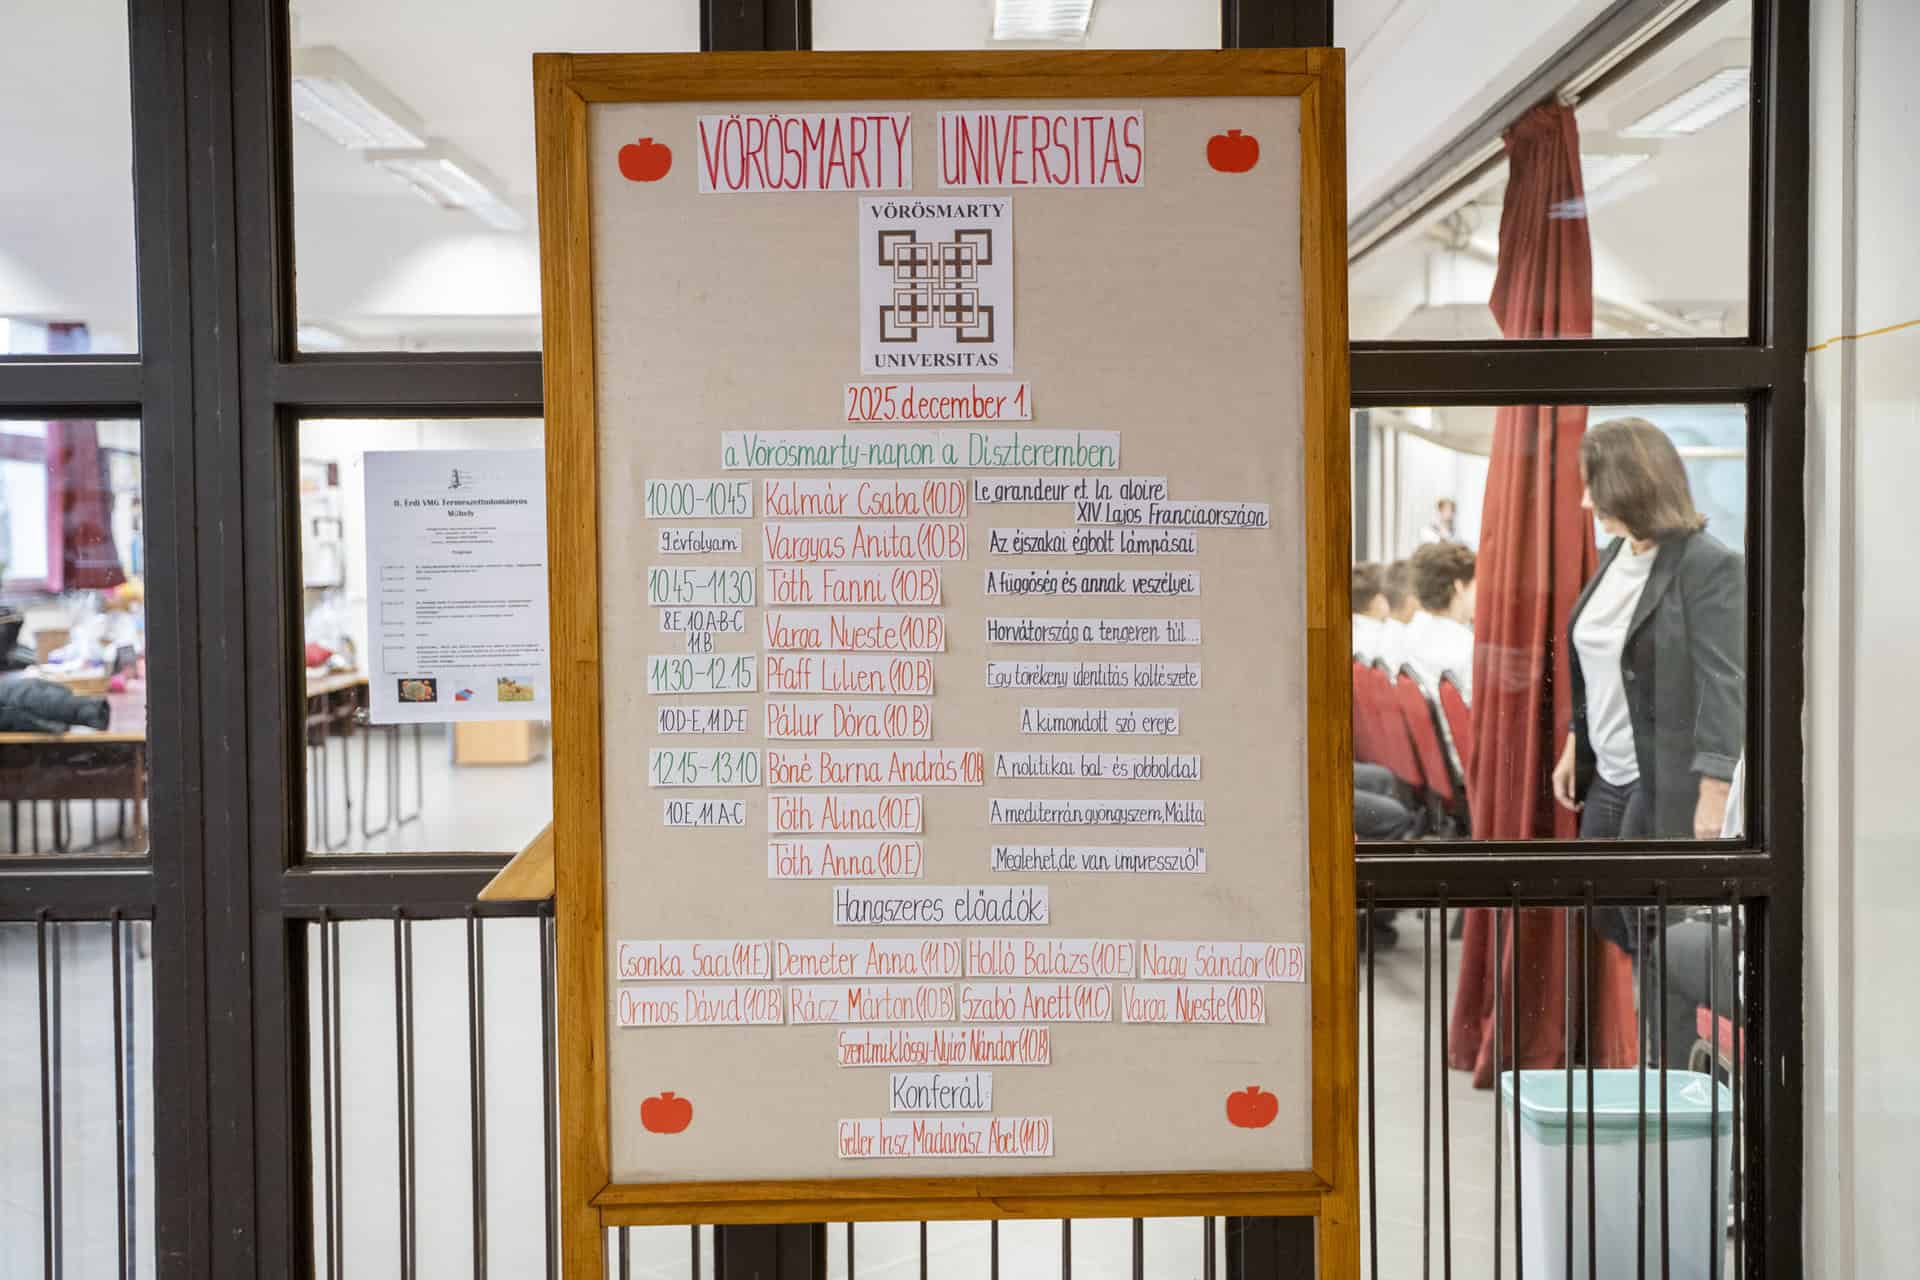 VÖRÖSMARTY UNIVERSITAS
VÖRÖSMARTY
UNIVERSITAS
2025.december 1.
a Vörösmarty-napon a Díszteremben
10.00-10.45 Kalmár Csaba (10.D) Le grandeur et la gloire
XIV. Lajos Franciaországa
9.évfolyam Vargyas Anita (10.B) Az éjszakai égbolt lámpásai
10.45-11.30 Tóth Fanni (10.B) A függőség és annak veszélyei
8.E, 10.A-B-C
11.B Varga Nyeste (10.B) Horvátország a tengeren túl...
11.30-12.15 Pfaff Lilien (10.B) Egy törékeny identitás költészete
10.D-E, 11.D-E Pálur Dóra (10.B) A kimondott szó ereje
12.15-13.10 Bóné Barna András 10.B A politikai bal- és jobboldal
10.E, 11.A-C Tóth Alina (10.E) A mediterrán gyöngyszem, Málta
Tóth Anna (10.E) „Meglehet, de van impresszió!"
Hangszeres előadók:
Csonka Saci (11.E) Demeter Anna (11.D) Holló Balázs (10.E) Nagy Sándor (10.B)
Ormos Dávid (10.B) Rácz Márton (10.B) Szabó Anett (11.C) Varga Nyeste (10.B)
Szentmiklóssy-Nyírő Nándor (10.B)
Konferál:
Geller Írisz, Madarász Ábel (11.D)
II. Érdi VMG Természettudományos
Műhely